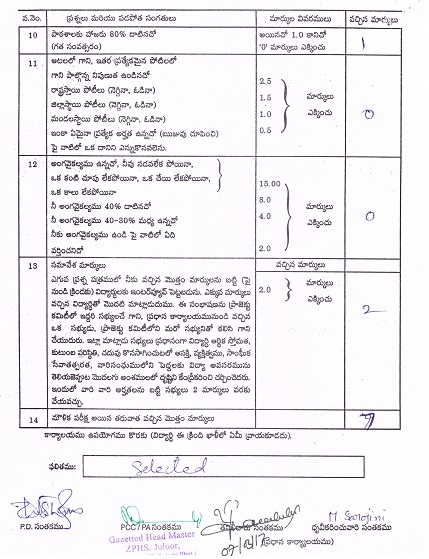 వ.నెం. ప్రశ్నలు మరియు పడపోత సంగతులు మార్కుల వివరములు వచ్చిన మార్కులు
10 పాఠశాలకు హాజరు 80% దాటినదో అయినదో 1.0 కానిచో 1
(గత సంవత్సరం) '0' మార్కులు ఎక్కించు
11 ఆటలలో గాని, ఇతర ప్రత్యేకమైన పోటీలలో
గాని పాల్గొన్న నిపుణత ఉండినదో 2.5
రాష్ట్రస్థాయి పోటీలు (నెగ్గినా, ఓడినా) 1.5 మార్కులు
జిల్లాస్థాయి పోటీలు (నెగ్గినా, ఓడినా) 1.0 ఎక్కించు 0
మండలస్థాయి పోటీలు (నెగ్గినా, ఓడినా) 0.5
ఇంకా ఏమైనా ప్రత్యేక అర్హత ఉన్నదో (ఋజువు చూపించి)
పై వాటిలో ఒక దానిని ఎన్నుకొనవలెను.
12 అంగవైకల్యము ఉన్నదో, నీవు నడవలేక పోయినా,
ఒక కంటి చూపు లేకపోయినా, ఒక చేయి లేకపోయినా, 15.00
ఒక కాలు లేకపోయినా 8.0
నీ అంగవైకల్యము 40% దాటినదో 4.0 మార్కులు
నీ అంగవైకల్యము 40-30% మధ్య ఉన్నదో ఎక్కించు 0
నీకు అంగవైకల్యము ఉండి పై వాటిలో ఏది
వర్తించనిదో 2.0
13 సమావేశ మార్కులు వచ్చిన మార్కులు
ఎగువ ప్రశ్న పత్రములో నీకు వచ్చిన మొత్తం మార్కులను బట్టి (పై
నుండి క్రిందకు) విద్యార్థులకు ఇంటర్‌వ్యూవ్ పెట్టబడును. ఎక్కువ మార్కులు 2.0 మార్కులు
వచ్చిన విద్యార్థితో మొదటి మాట్లాడుదుము. ఈ సంభాషణను ప్రాజెక్టు ఎక్కించు
కమిటీలో ఇద్దరి సభ్యులచే గాని, ప్రధాన కార్యాలయమునుండి వచ్చిన 2
ఒక సభ్యుడు, ప్రాజెక్టు కమిటీలోని మరో సభ్యునితో కలిసి గాని
చేయుదురు. ఇట్లా మాట్లాడు సభ్యులు ప్రధానంగా విద్యార్థి ఆర్థిక స్తోమత,
కుటుంబ పరిస్థితి, చదువు కొనసాగించుటలో ఆసక్తి, వ్యక్తిత్వము, సాంఘీక
సేవాతత్పరత, వారిసంఘములోని పెద్దలకు విద్యా అవసరమును
తెలియజెప్పుట మొదలగు అంశములలో దృష్టిని కేంద్రీకరించి చర్చించెదరు.
ఇందులో వారి వారి అర్హతలను బట్టి సభ్యులు 2 మార్కులు వరకు
వేయవచ్చు.
14 మౌళిక పరీక్ష అయిన తరువాత వచ్చిన మొత్తం మార్కులు
కార్యాలయము ఉపయోగము కొరకు (విద్యార్థి ఈ క్రింది ఖాళీలో ఏమీ వ్రాయకూడదు).
ఫలితము: Selected
M Sarojini
P.D. సంతకము PCC / PA సంతకము సంతకము ధృవీకరించువారి సంతకము
Gazetted Head Master (ప్రధాన కార్యాలయము)
ZPHS, Juloor,